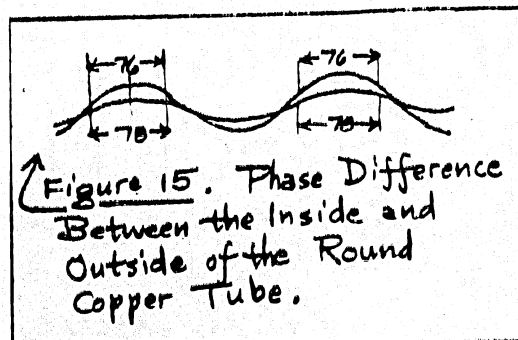 76 76
78 78
Figure 15. Phase Difference
Between the Inside and
Outside of the Round
Copper Tube.